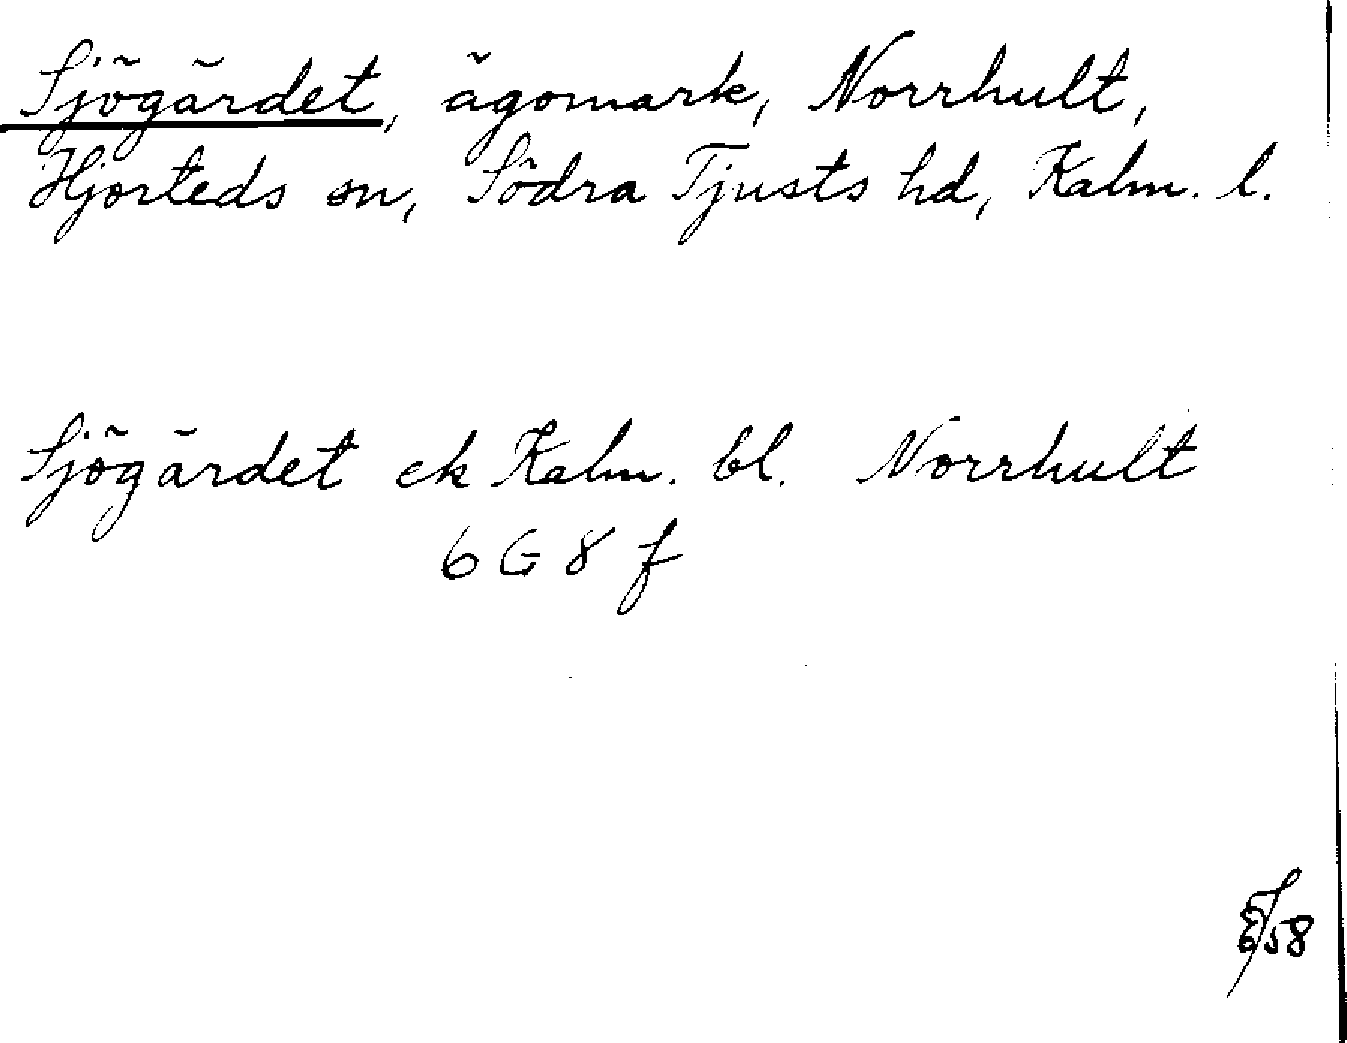 Sjögärdet, ägomark, Norrhult,
Hjorteds sn, Södra Tjusts hd, Kalm. l.
Sjögärdet ek Kalm. bl. Norrhult
6 G 8 f
58